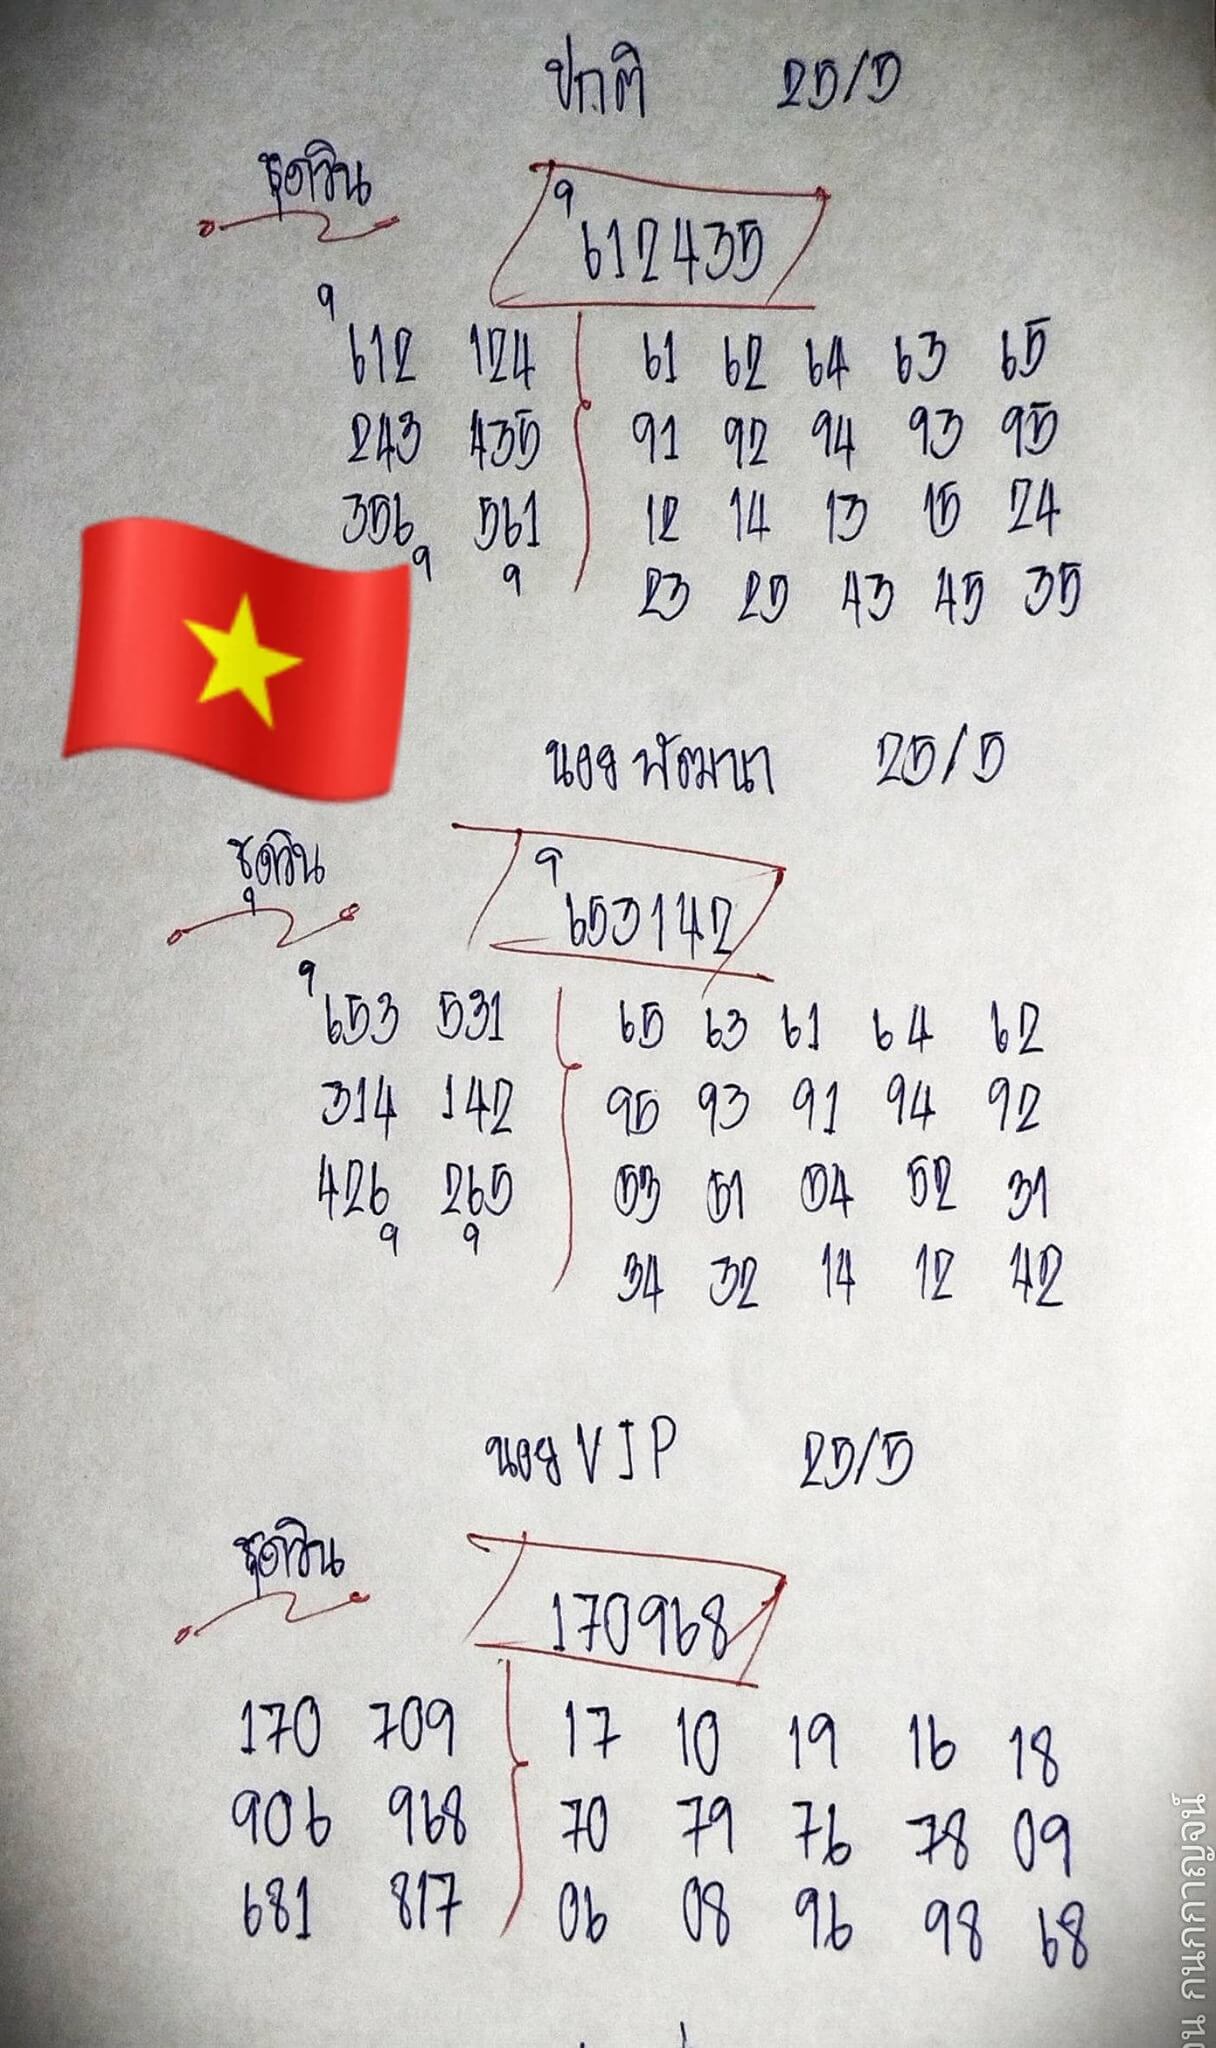 ปกติ 25/5
ชุดวิน
9
612435
9
612 124 61 62 64 63 65
243 435 91 92 94 93 95
356 561 12 14 13 15 24
9 9
23 25 43 45 35
นอยพัฒนา 25/5
ชุดวิน
9
653142
9
653 531 65 63 61 64 62
314 142 95 93 91 94 92
426 265 53 51 54 52 31
9 9
34 32 14 12 42
นอย VIP 25/5
ชุดวิน
170968
170 709 17 10 19 16 18
906 968 70 79 76 78 09
681 817 06 08 96 98 68
กนกกาญจน์